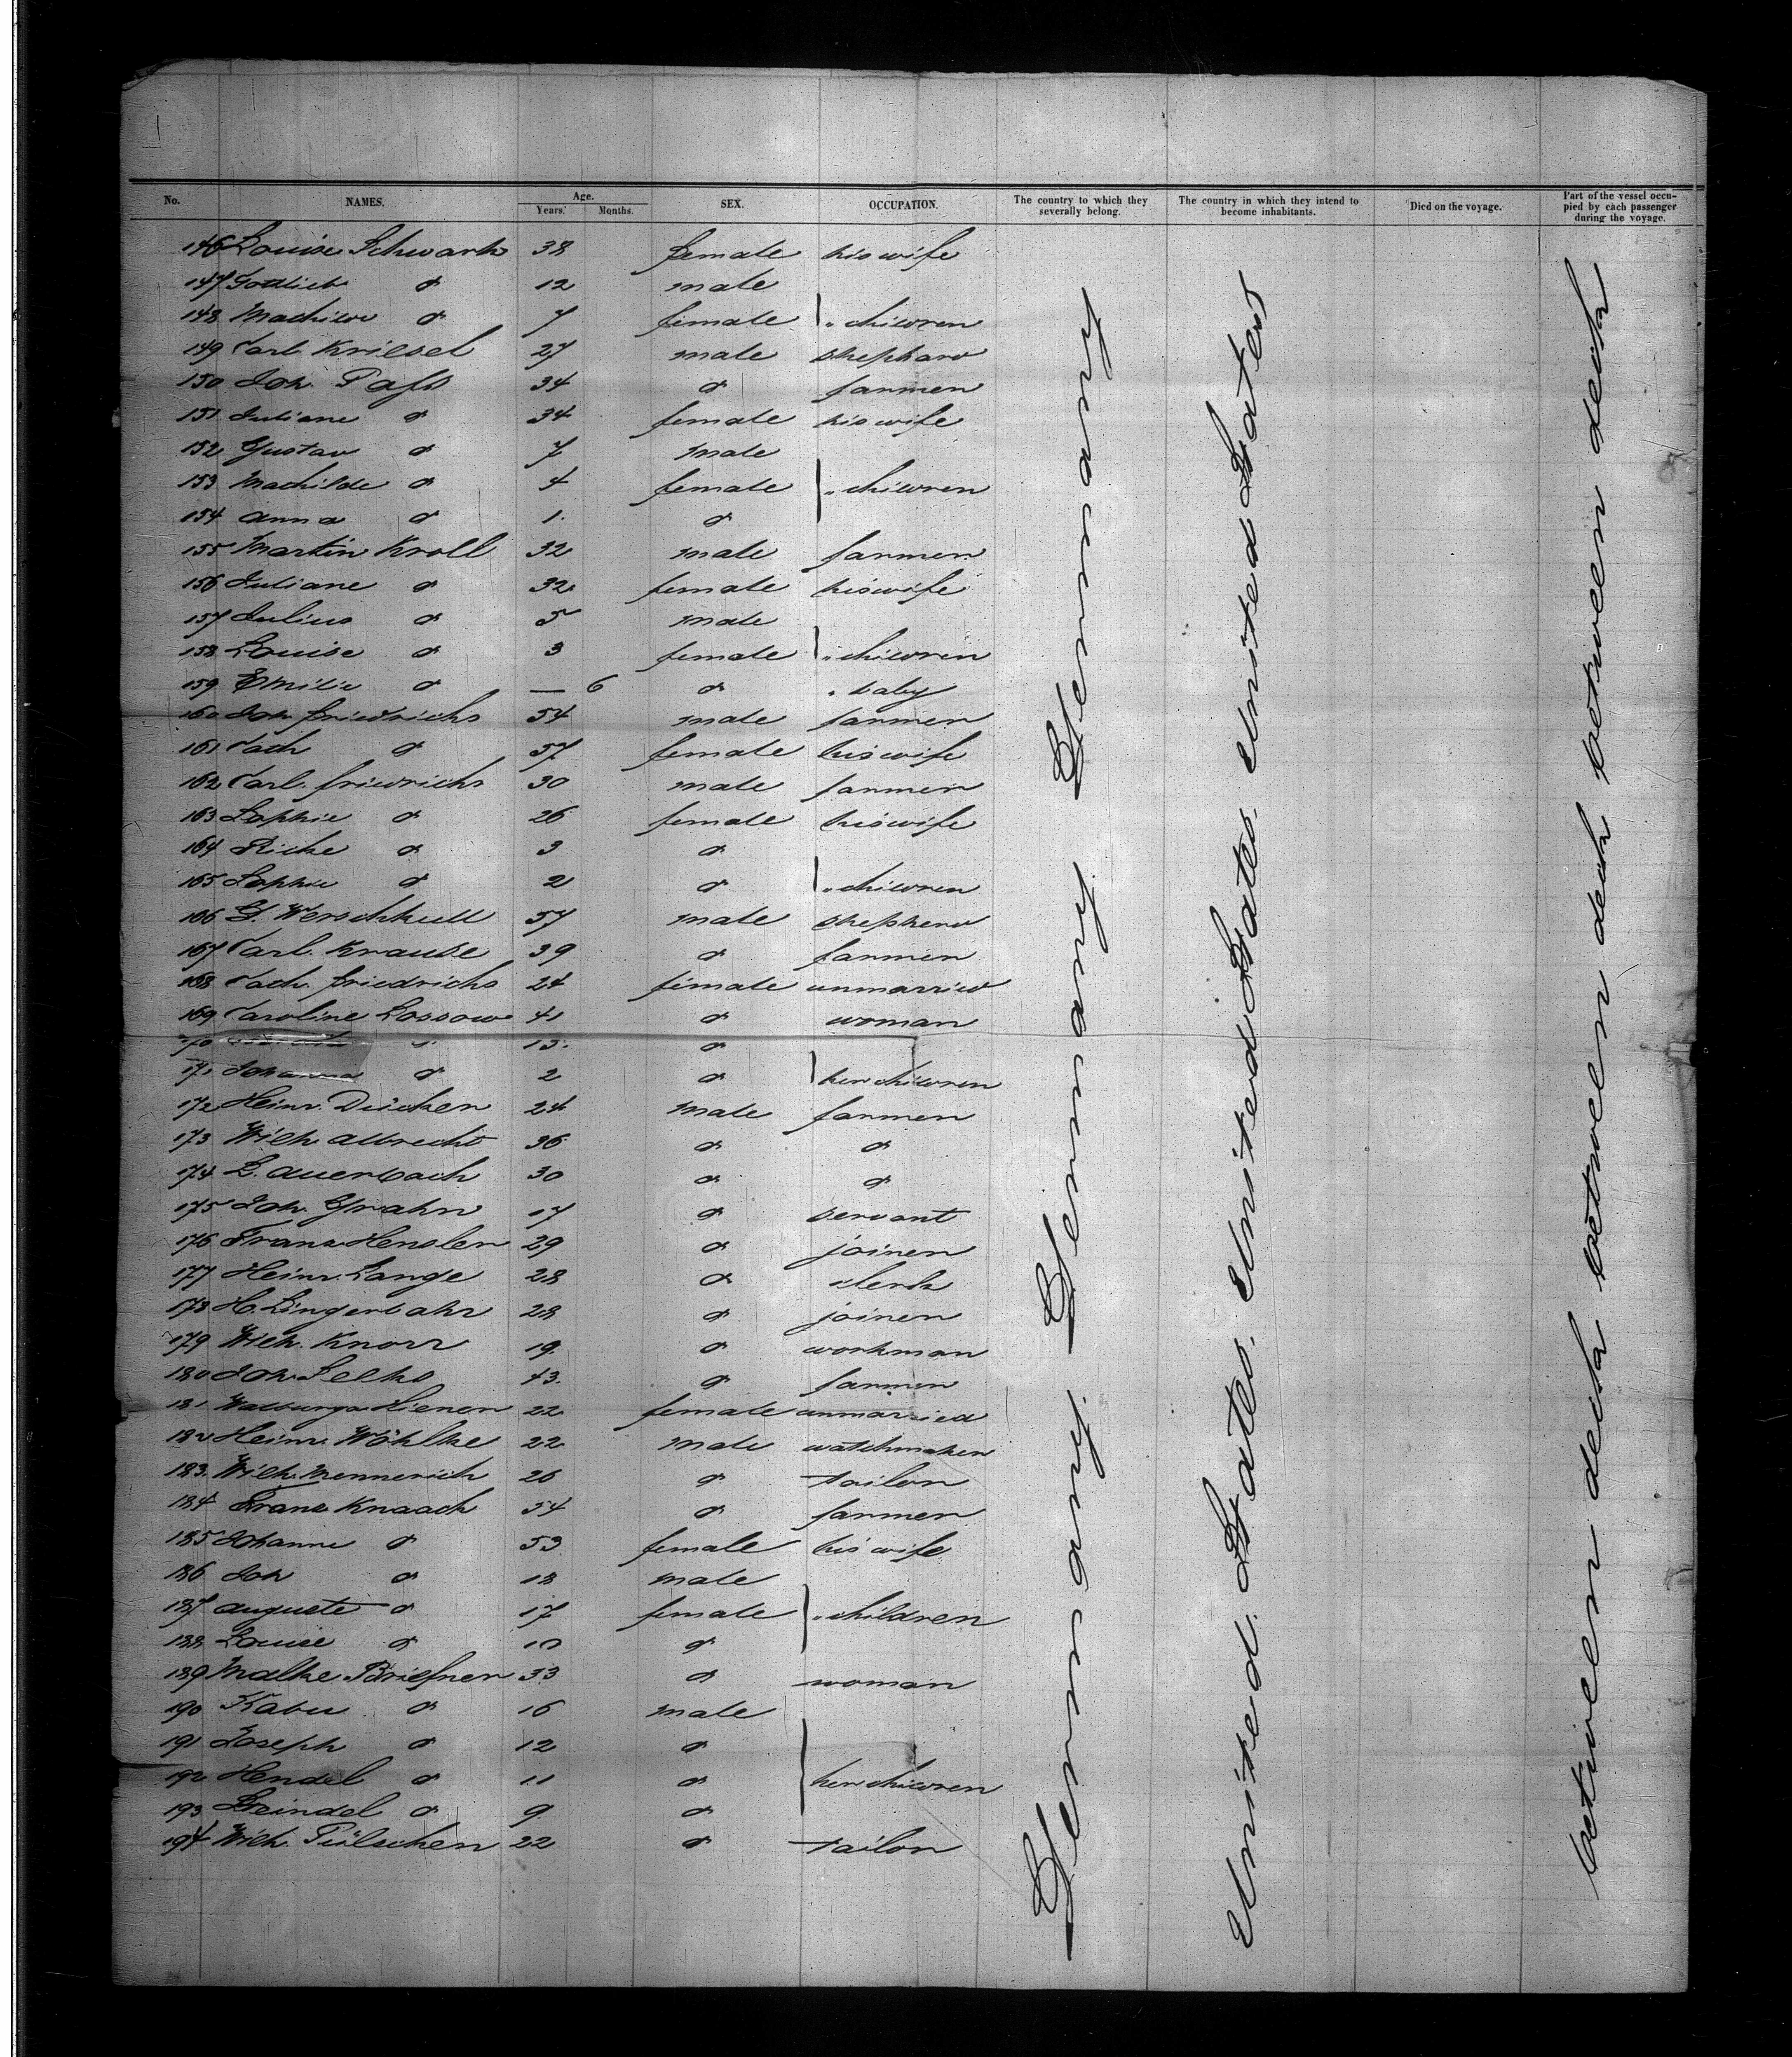 No. NAMES. Age. Years. Months. SEX. OCCUPATION. The country to which they severally belong. The country in which they intend to become inhabitants. Died on the voyage. Part of the vessel occupied by each passenger during the voyage.
146 Louise Schwark 38 female his wife
147 Gottlieb do 12 male
148 Mathilde do 7 female " children
149 Carl Kriesel 27 male shephard
150 Joh. Pass 34 do farmer
151 Juliane do 34 female his wife
152 Gustav do 7 male
153 Mathilde do 4 female " children
154 Anna do 1 do
155 Martin Kroll 32 male farmer
156 Juliane do 32 female his wife
157 Julius do 5 male
158 Louise do 3 female " children
159 Emilie do — 6 do " baby
160 Joh. Friedrichs 54 male farmer
161 Cath do 57 female his wife
162 Carl. Friedrichs 30 male farmer
163 Sophie do 26 female his wife
164 Ricke do 3 do
165 Sophie do 2 do " children
166 Werschkull 57 male shepherd
167 Carl. Krause 39 do farmer
168 Cath. Friedrichs 24 female unmarried
169 Caroline Lossow 41 do woman
170 do 15 do
171 Johanna do 2 do her children
172 Heinr. Dücker 24 male farmer
173 Wilh. Albrecht 36 do do
174 L. Auerbach 30 do do
175 Joh. Grahn 17 do servant
176 Franz Hensler 29 do joiner
177 Heinr. Lange 28 do clerk
178 H. Lingerbahr 28 do joiner
179 Wilh. Knorr 19 do workman
180 Joh. 43 do farmer
181 Walburga Hiener 22 female unmarried
182 Heinr. Wöhlke 22 male watchmaker
183 Wilh. Mennerich 26 do tailor
184 Franz Knaack 54 do farmer
185 Johanne do 53 female his wife
186 Joh do 18 male
187 Auguste do 17 female " children
188 Louise do 10 do
189 Malke Briefner 33 do woman
190 do 16 male
191 Joseph do 12 do
192 Hendel do 11 do her children
193 do 9 do
194 Wilh. Pülschen 22 do tailor
Germany Germany Germany Germany
United States United States United States
between deck between deck between deck